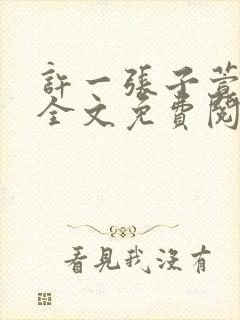 許一張子萱
全文免費閱
看見我沒有